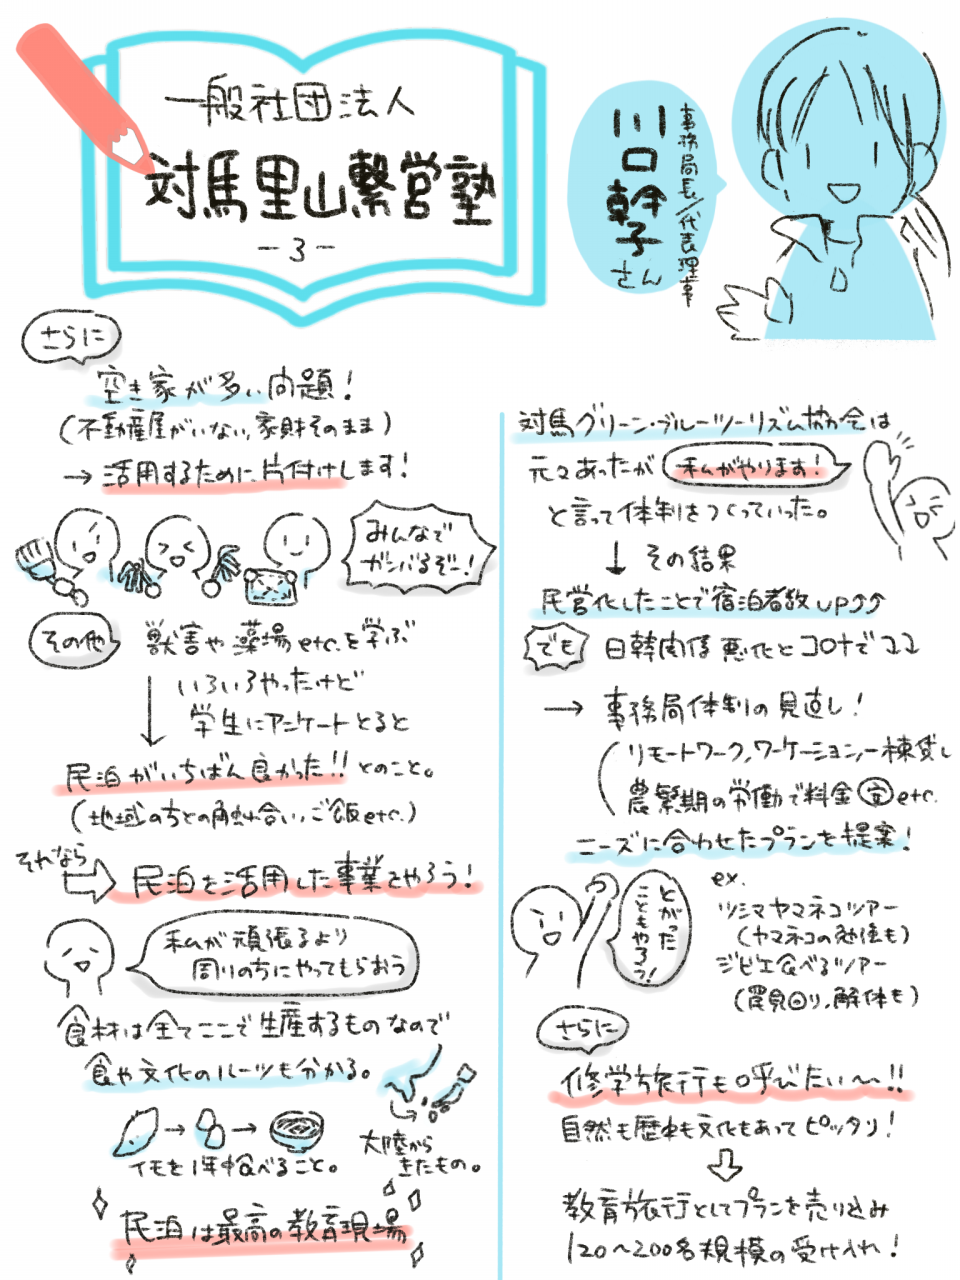 一般社団法人
対馬里山繋営塾
-3-
事務局長/代表理事
川口幹子さん
さらに
空き家が多い問題!
(不動産屋がいない、家財そのまま)
→活用するために片付けします!
みんなで
ガンバるぞー!
その他
獣害や藻場etc.を学ぶ
いろいろやったけど
学生にアンケートとると
民泊がいちばん良かった!!とのこと。
(地域の方との触れ合い、ご飯etc.)
それなら
民泊を活用した事業をやろう!
私が頑張るより
周りの方にやってもらおう
食材は全てここで生産するものなので
食や文化のルーツも分かる。
→ →
イモを1年中食べること。
大陸から
きたもの。
民泊は最高の教育現場
対馬グリーン・ブルーツーリズム協会は
元々あったが
私がやります!
と言って体制をつくっていった。
↓その結果
民営化したことで宿泊者数UP↑↑
でも
日韓関係悪化とコロナでココ
→事務局体制の見直し!
(リモートワーク、ワーケーション、一棟貸し
農繁期の労働で料金安etc.
ニーズに合わせたプランを提案!
とがった
こともやろう!
ex.
ツシマヤマネコツアー
(ヤマネコの勉強も)
ジビエ食べるツアー
(罠見回り、解体も)
さらに
修学旅行も呼びたい〜!!
自然も歴史も文化もあってピッタリ!
教育旅行としてプランを売り込み
120〜200名規模の受け入れ!